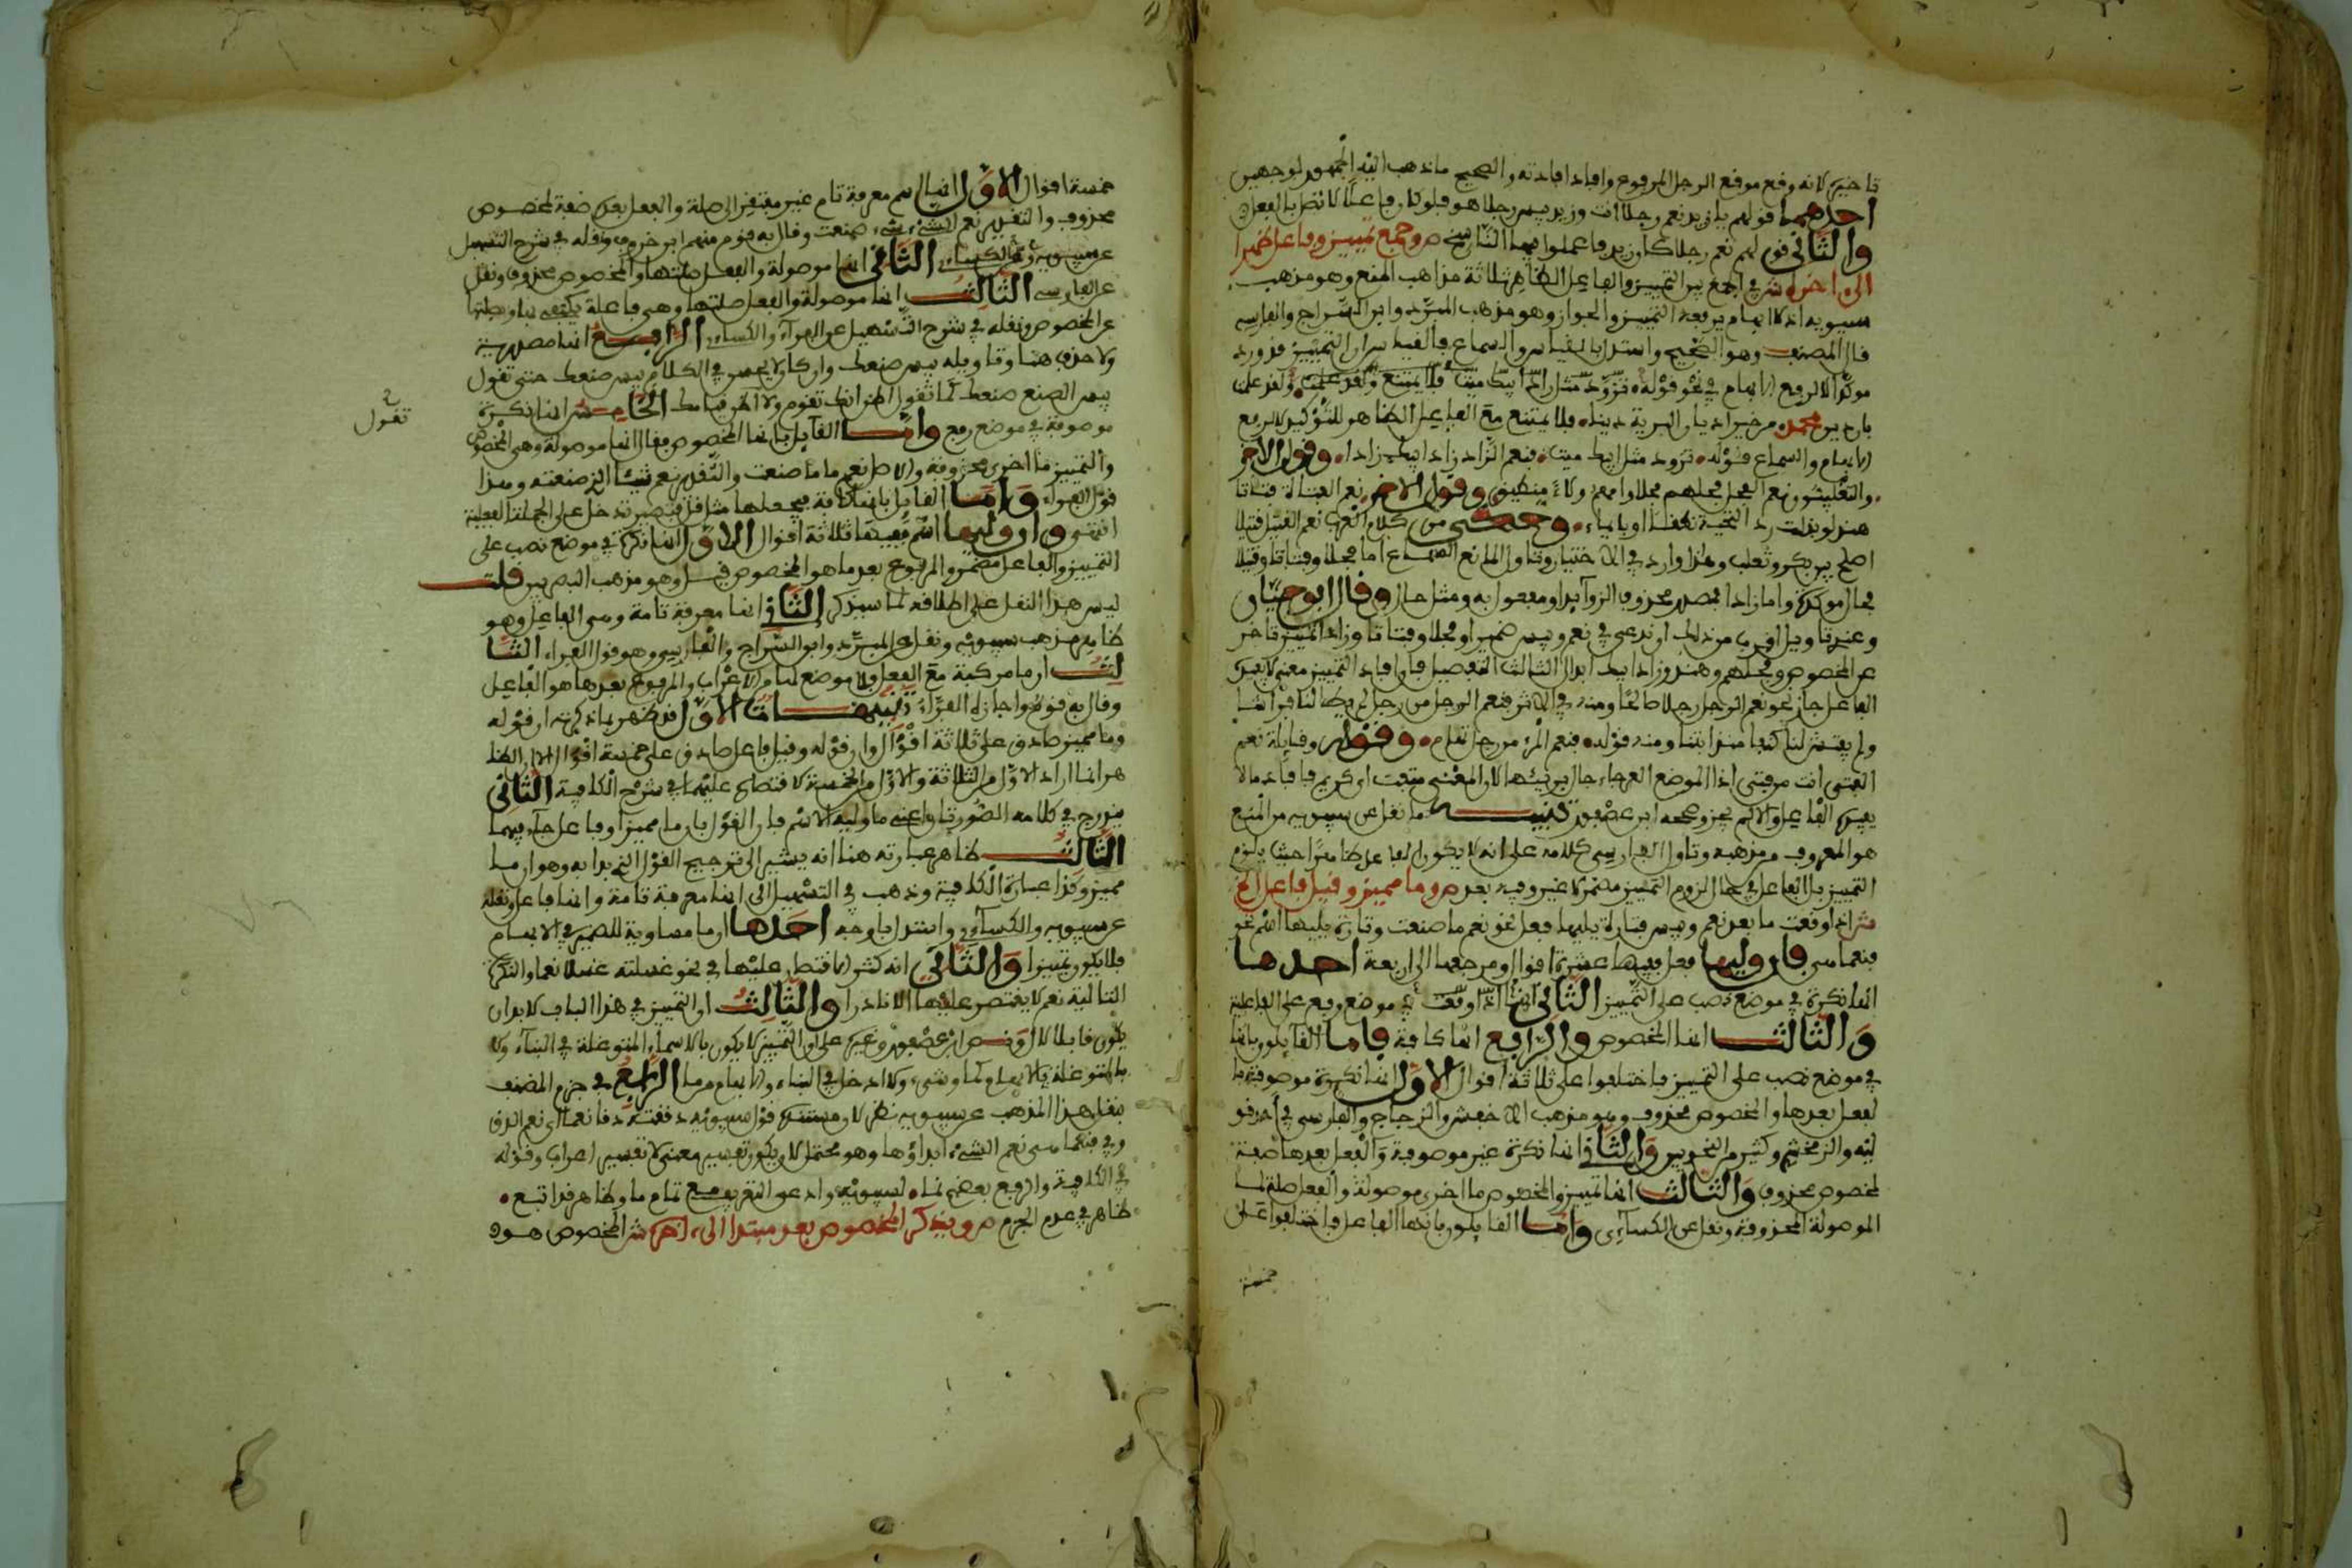 تاخيره لانه وقع موقع الرجل المرفوع وافاد افادته والصحيح ما ذهب اليه الجمهور لوجهين
احدهما قولهم يا زيد نعم رجلا انت وزيد بيس رجلا هو فلو كان فاعلا لاتصل بالفعل
والثاني قولهم نعم رجلا كان زيد فاعملوا فيها الناسخ ص وجمع تمييز وفاعل ظهرا
الى اخره ش في الجمع بين التمييز والفاعل الظاهر ثلاثة مذاهب المنع وهو مذهب
سيبويه اذ لا ابهام يرفعه التمييز والجواز وهو مذهب المبرد وابن السراج والفارسي
قال المصنف وهو الصحيح واستدل بالقياس والسماع فالقياس ان التمييز قد ورد
موكدا لا لرفع الابهام في نحو قوله ولقد علمت
بان دين محمد من خير اديان البرية دينا فلا يمتنع مع الفاعل الظاهر للتوكيد لا لرفع
الابهام والسماع قوله تزود مثل ابيك فينا فنعم الزاد زاد ابيك زادا وقول الاخر
والتغلبيون نعم الفحل فحلهم فحلا وامهم ولاء منطيق وقول الاخر نعم الفتاة فتاة
هند لو بذلت رد التحية نطقا او بايماء وحكي من كلام العرب نعم القتيل قتيلا
اصلح بين بكر وتغلب وهذا وارد في الاختيار وتاول المانع السماع اما فحلا وفتاة وقتيلا
فحال موكدة واما زادا فمصدر محذوف الزوائد او مفعول به ومثل حال وقال ابو حيان
وعندي تاويل اقرب من ذلك ان تدعي في نعم وبيس ضميرا وفحلا وفتاة وزادا تمييز تاخر
عن المخصوص وفحلهم وهند وزاد ابيك ابدال الثالث التفصيل فان افاد التمييز معنى لا يفيده
الفاعل جاز نحو نعم الرجل رجلا صالحا ومنه في الاثر فنعم الرجل من رجل لم يطا لنا فراشا
ولم يفتش لنا كنفا منذ اتانا ومنه قوله فنعم المرء من رجل تهام وقوله وقايلة نعم
الفتى انت من فتى
يفيده الفاعل والا لم يجز وصححه ابن عصفور تنبيه ما نقل عن سيبويه من المنع
هو المعروف من مذهبه وتاول الفارسي كلامه على انه لا يكون الفاعل ظاهرا حيث يلزم
التمييز بل الفاعل في حال لزوم التمييز مضمر لا غير ص وما مميز وقيل فاعل الخ
ش اذا وقعت ما بعد نعم وبيس فتارة يليها فعل نحو نعم ما صنعت وتارة يليها اسم نحو
فنعما هي فان وليها فعل ففيها عشرة اقوال ومرجعها الى اربعة احدها
انها نكرة في موضع نصب على التمييز الثاني انها في موضع رفع على الفاعلية
والثالث انها المخصوص والرابع انها كافة فاما القايلون بانها
في موضع نصب على التمييز فاختلفوا على ثلاثة اقوال الاول انها نكرة موصوفة با
لفعل بعدها والمخصوص محذوف وهو مذهب الاخفش والزجاج والفارسي في احد قو
ليه والزمخشري وكثير من المتاخرين والثاني انها نكرة غير موصوفة والفعل بعدها صفة
لمخصوص محذوف والثالث انها تمييز والمخصوص ما اخرى موصولة والفعل صلة لما
الموصولة المحذوفة ونقل عن الكسائي واما القايلون بانها الفاعل فاختلفوا على
خمسة
خمسة اقوال الاول انها اسم معرفة تام غير مفتقر الى صلة والفعل بعده صفة لمخصوص
محذوف والتقدير نعم الشيء شيء صنعت وقال به قوم منهم ابن خروف ونقله في شرح التسهيل
عن سيبويه والكسائي الثاني انها موصولة والفعل صلتها والمخصوص محذوف ونقل
عن الفارسي الثالث انها موصولة والفعل صلتها وهي فاعلة يكتفى بها وبصلتها
عن المخصوص ونقله في شرح التسهيل عن الفراء والكسائي الرابع انها مصدرية
ولا حذف هنا وتاويله بيس صنعك وان كان لا يحسن في الكلام بيس صنعك حتى تقول
بيس الصنع صنعك كما تقول اظن انك تقوم ولا اظن قيامك الخامس انها نكرة
تقول
موصوفة في موضع رفع واما القايل بانها المخصوص فقال انها موصولة وهي المخصوص
والتمييز ما اخرى محذوفة والاصل نعم ما ما صنعت والتقدير نعم شيئا الذي صنعته وهذا
قول الفراء واما القايل بانها كافة فيجعلها مثل قل فتصير تدخل على الجملة الفعلية
انتهى وان وليها اسم ففيها ثلاثة اقوال الاول انها نكرة في موضع نصب على
التمييز والفاعل مضمر والمرفوع بعد ما هو المخصوص قيل وهو مذهب البصريين قلت
ليس هذا النقل على اطلاقه لما سيذكر الثاني انها معرفة تامة وهي الفاعل وهو
ظاهر مذهب سيبويه ونقل عن المبرد وابن السراج والفارسي وهو قول الفراء الثا
لث ان ما مركبة مع الفعل فلا موضع لها من الاعراب والمرفوع بعدها هو الفاعل
وقال به قوم واجازه الفراء تنبيهات الاول قد ظهر بما ذكرته ان قوله
وما مميز صادق على ثلاثة اقوال وان قوله وقيل فاعل صادق على خمسة اقوال الا ان الظا
هر انما اراد الاول من الثلاثة والاول من الخمسة لاقتصاره عليهما في شرح الكافية الثاني
يندرج في كلامه الصورتان اعني ما وليه الاسم فان القول بان ما مميز او فاعل جار فيهما
الثالث ظاهر عبارته هنا انه يشير الى ترجيح القول الذي بدا به وهو ان ما
مميز وكذا عبارة الكافية وذهب في التسهيل الى انها معرفة تامة وانها فاعل ونقله
عن سيبويه والكسائي واستدل باوجه احدها ان ما مساوية للضمير في الابهام
فلا تكون تمييزا والثاني انه كثر الاقتصار عليها في نحو غسلته غسلا نعما والنكرة
التالية نعم لا يقتصر عليها الا نادرا والثالث ان التمييز في هذا الباب لا بد ان
يكون قابلا لال ونص ابن عصفور وغيره على ان التمييز لا يكون بالاسماء المتوغلة في البناء ولا
بالمتوغلة بالابهام كما وشيء ولا ادخل في البناء والابهام من ما الرابع في جزم المصنف
بنقل هذا المذهب عن سيبويه نظر لان مستنده قول سيبويه دققته دقا نعما اي نعم الدق
وفي فنعما هي نعم الشيء ابداؤها وهو محتمل لان يكون تفسير معنى لا تفسير اعراب وقوله
في الكافية والرفع بعضهم نما لسيبويه وادعى التعريف مع تمام ما وظاهر قد اتبع
ظاهر في عدم الجزم ص ويذكر المخصوص بعد مبتدا الى اخره ش المخصوص هو